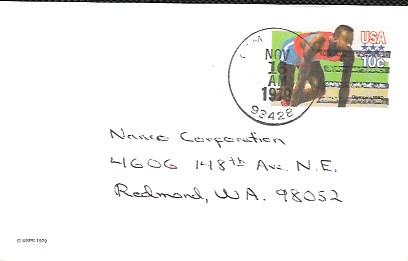 USA
10c
Olympics 1980
NOV
16
AM
1979
93428
Nanco Corporation
4606 148th Ave. N.E.
Redmond, WA. 98052
© USPS 1979